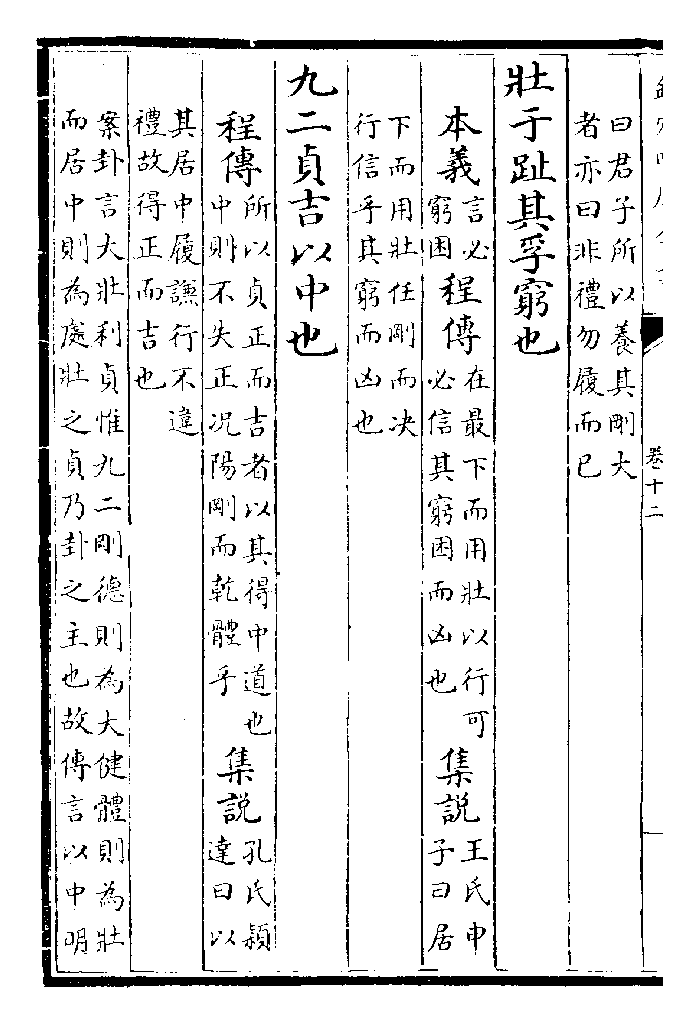 卷十二
曰君子所以養其剛大
者亦曰非禮勿履而已
壯于趾其孚窮也
本義
言必
窮困
程傳
在最下而用壯以行可
必信其窮困而凶也
集説
王氏申
子曰居
下而用壯任剛而决
行信乎其窮而凶也
九二貞吉以中也
程傳
所以貞正而吉者以其得中道也
中則不失正况陽剛而乾體乎
集説
孔氏穎
達曰以
其居中履謙行不違
禮故得正而吉也
案卦言大壯利貞惟九二剛德則為大健體則為壯
而居中則為處壯之貞乃卦之主也故傳言以中明